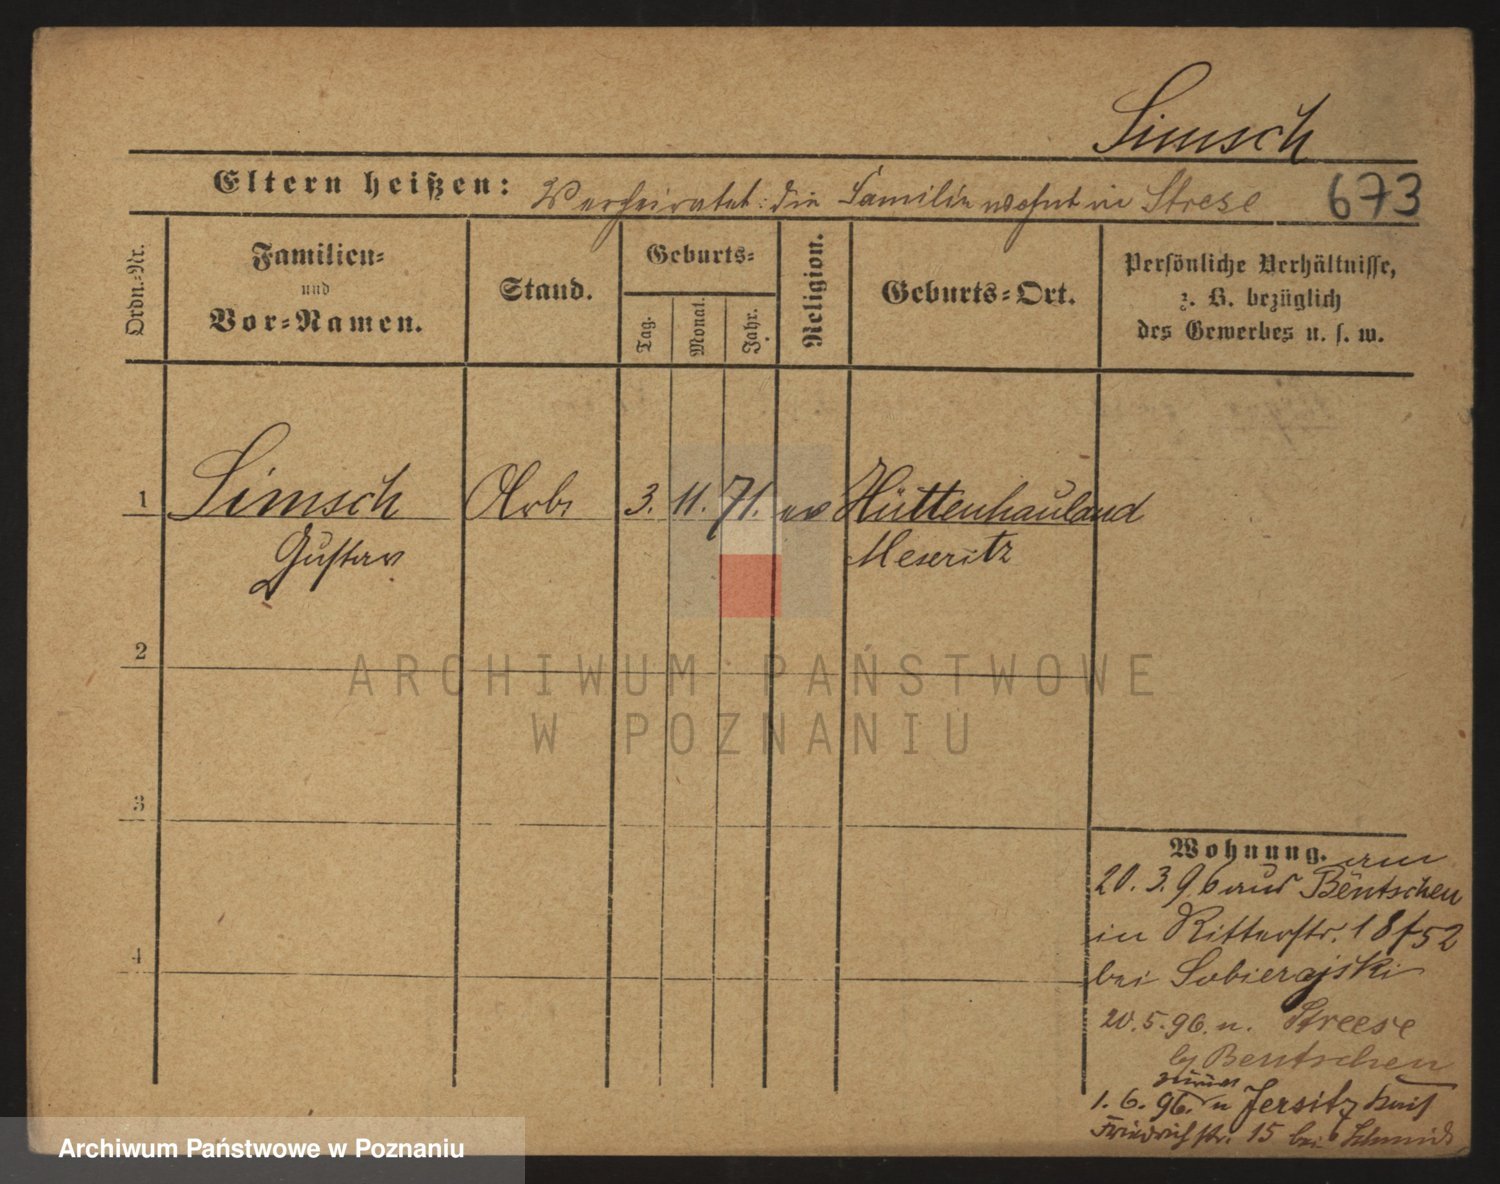 Simsch
Eltern heißen: Verheiratet: die Familie wohnt in Strese 673
Ordn.-Nr.
Familien-
und
Vor-Namen.
Stand.
Geburts-
Tag.
Monat.
Jahr.
Religion.
Geburts-Ort.
Persönliche Verhältnisse,
z. B. bezüglich
des Gewerbes u. s. w.
1 Simsch Arb 3. 11. 71. ev Hüttenhauland
Gustav Meseritz
2
ARCHIWUM PAŃSTWOWE
W POZNANIU
3
Wohnung. am
20. 3. 96 aus Bentschen
in Ritterstr. 18/52
bei Sobierajski
20. 5. 96. n. Streese
b/ Bentschen
zurück
1. 6. 96. n Jersitz
Friedrichstr. 15 bei Schmidt
4
Archiwum Państwowe w Poznaniu